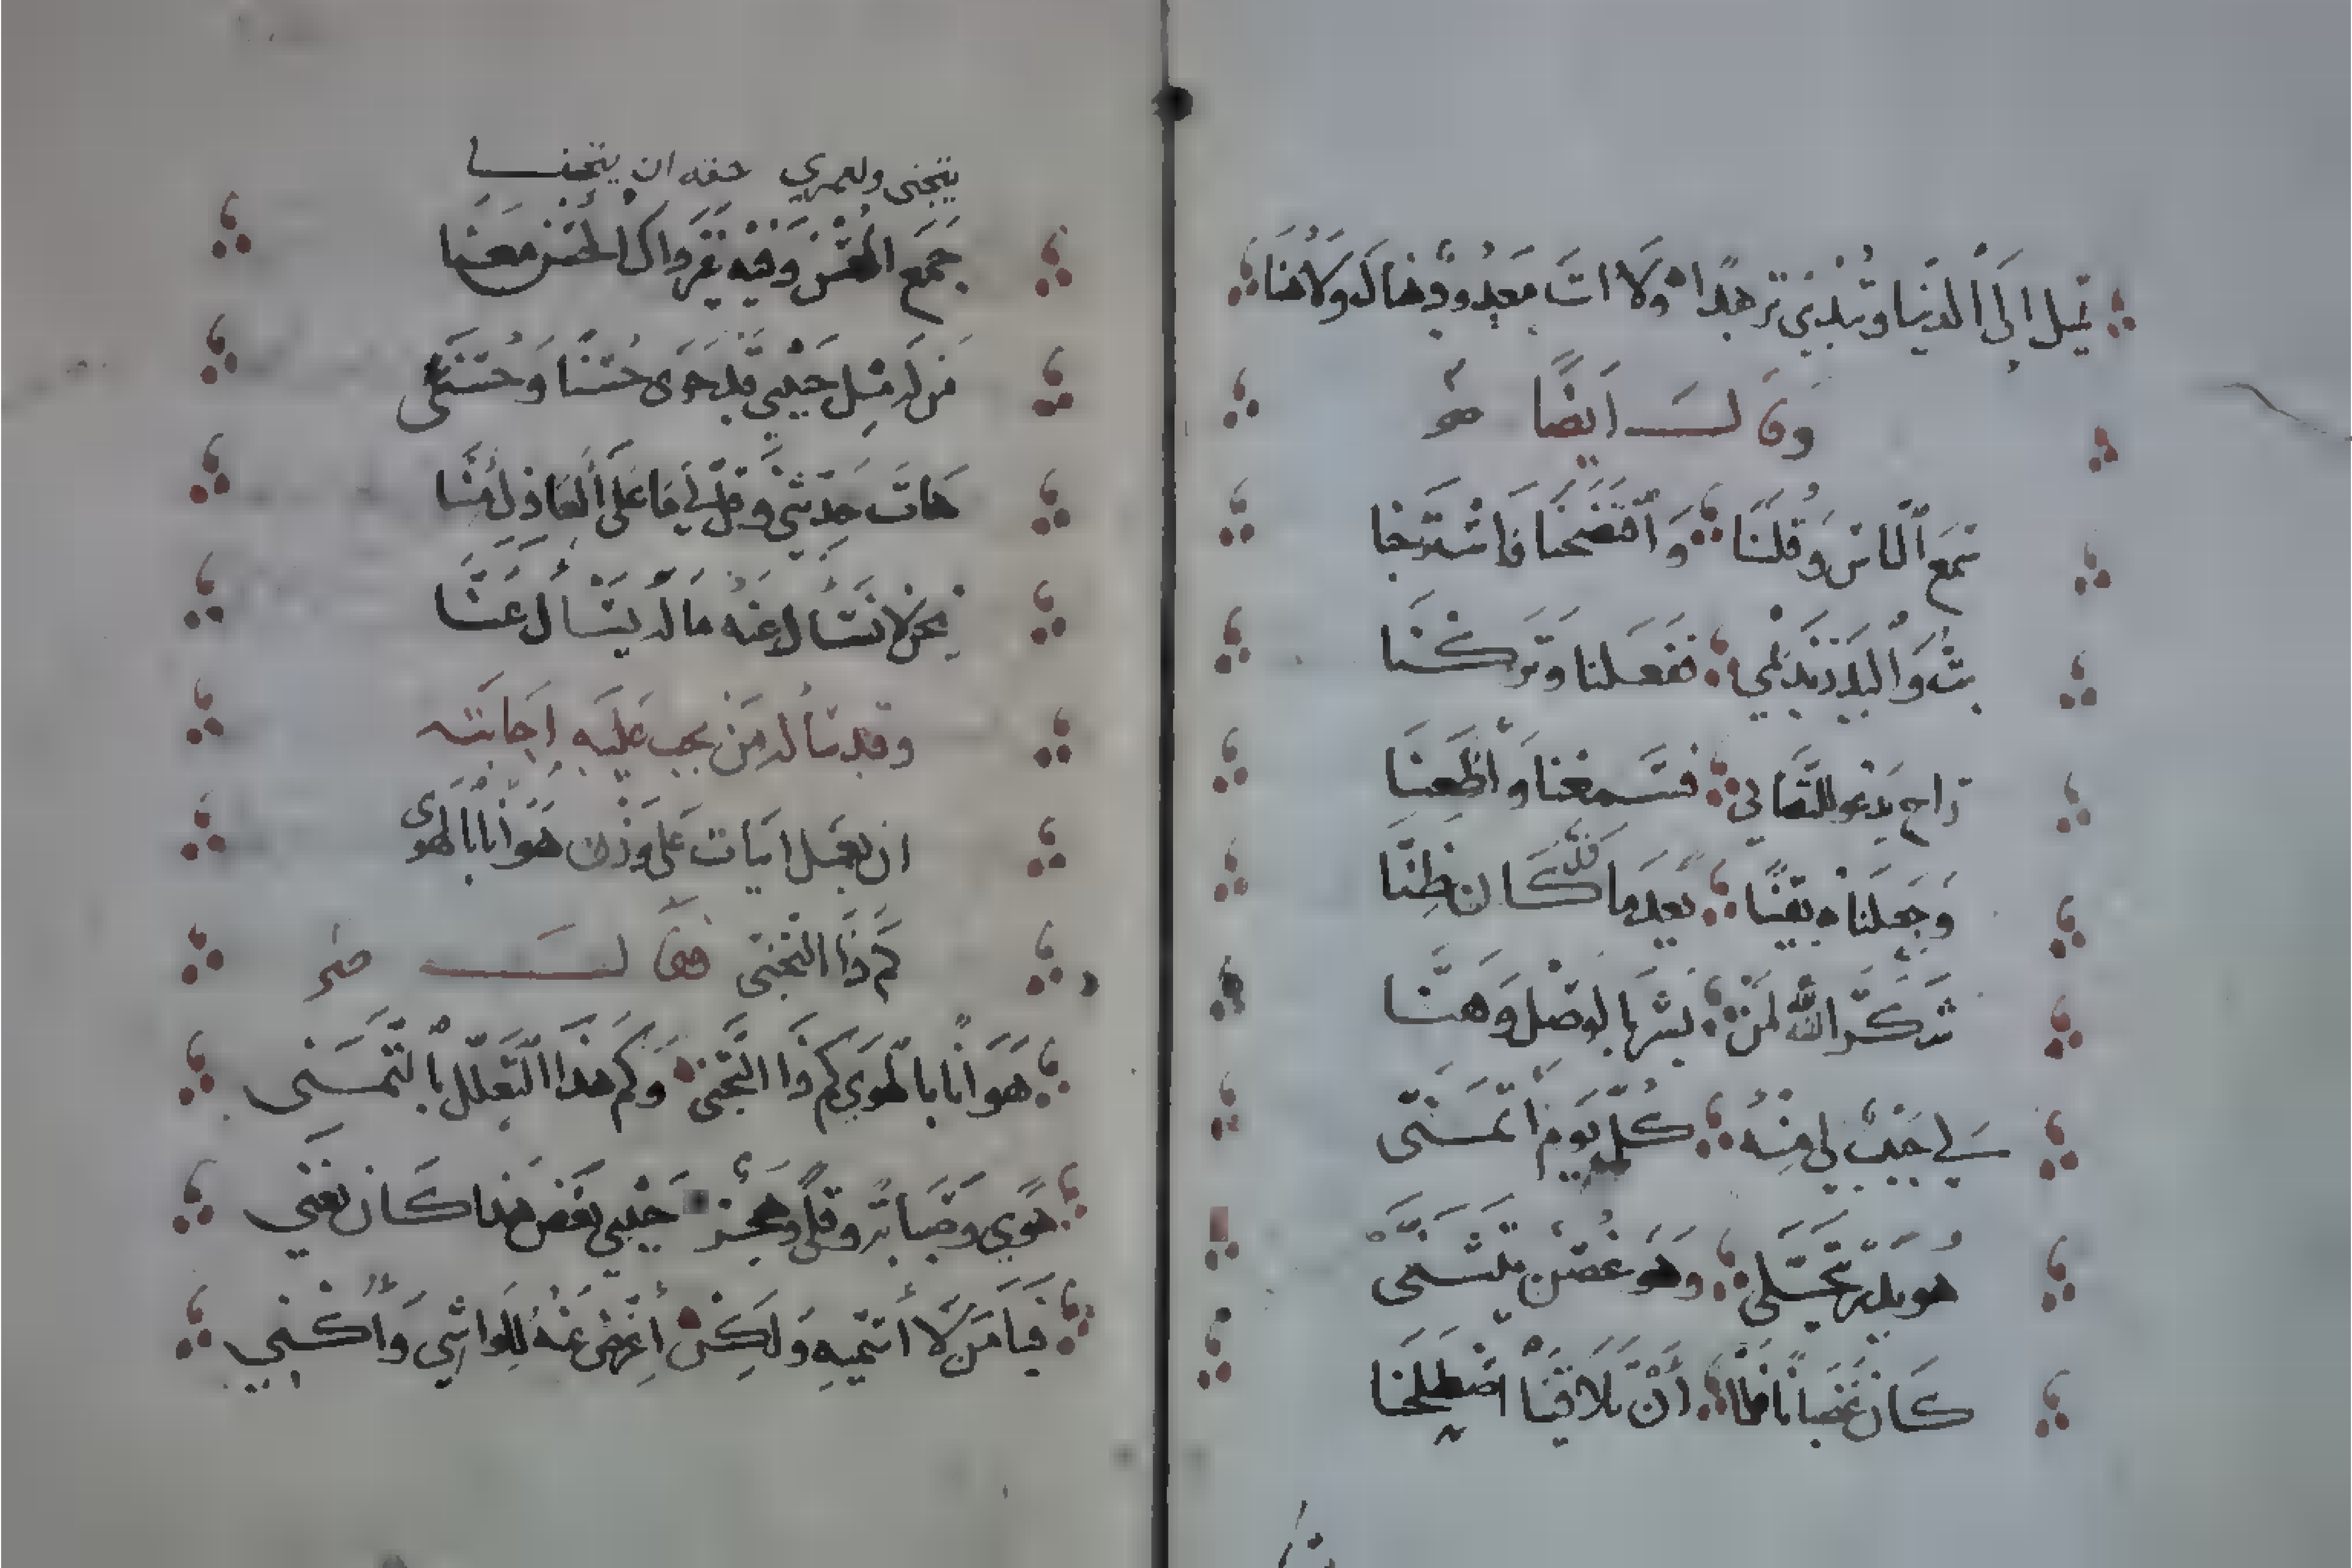 تميل إلى الدنيا وتبدي تزهدا ولا أنت معدود هناك ولا هنا
وقال أيضا
سمع الناس وقلنا وافتضحنا فاسترحنا
بت والبدر نديمي ففعلنا وتركنا
راح يدعو للتصابي فسمعنا وأطعنا
وجعلناه يقينا بعدما قد كان ظنا
شكر الله لمن بشر بالوصل وهنا
لي حبيب لي منه كل يوم أتمنى
هو بدر يتجلى وهو غصن يتثنى
كان غضبانا فلما أن تلاقينا اصطلحنا
يتجنى ولعمري حقه أن يتجنا
جمع الحسن وفيه غير ذاك الحسن معنا
من له مثل حبيبي قد حوى حسنا وحسنى
هات حدثني وقل لي ما على العاذل منا
نحن لا نسأل عنه ما له يسأل عنا
وقد سأله من يجب عليه إجابته
أن يعمل أبيات على وزن هوانا بالهوى
كم ذا التجني فقال
هوانا بالهوى كم ذا التجني وكم هذا التعلل بالتمني
هوى وصبابة وقلى وهجر حبيبي بعض هذا كان يغني
فيا من لا أسميه ولكن أعرض عنه للواشي وأكني